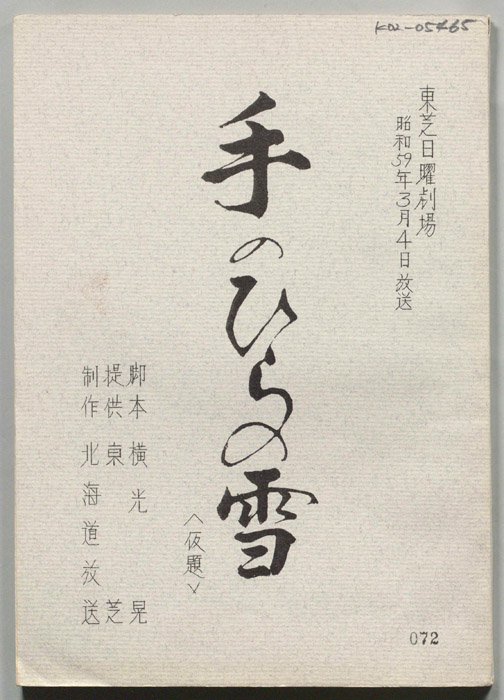 K02-05465
東芝日曜劇場
昭和59年3月4日放送
手のひらの雪
〈仮題〉
脚本 横光 晃
提供 東芝
制作 北海道放送
072